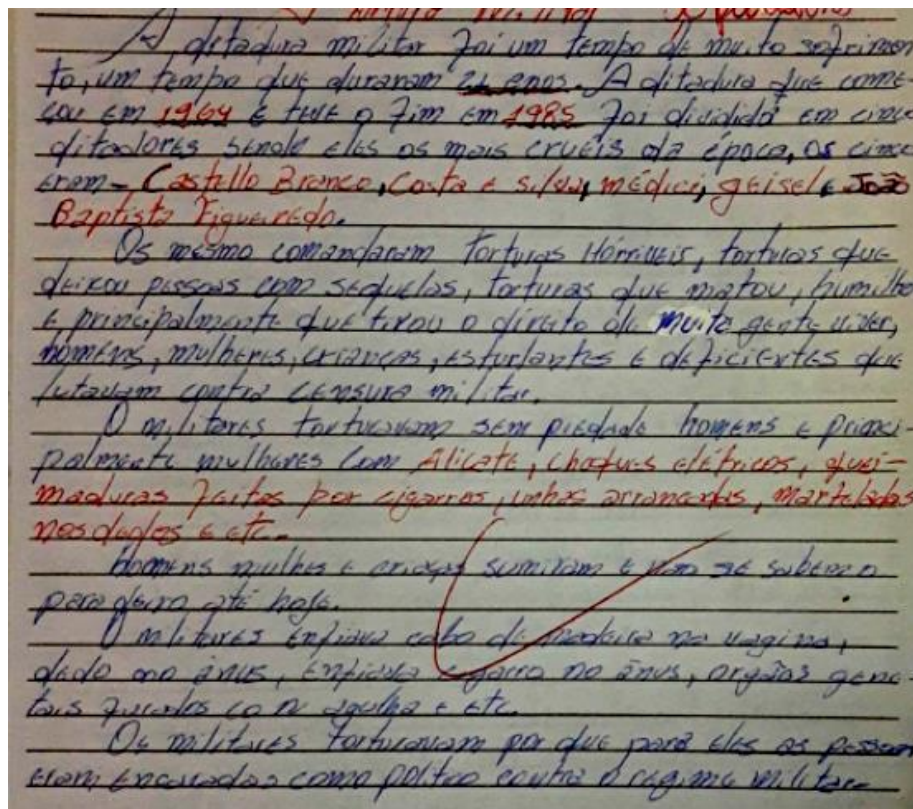 A ditadura militar foi um tempo de muito sofrimen-
to, um tempo que duraram 21 anos. A ditadura que come-
çou em 1964 e teve o fim em 1985 foi dividida em cinco
ditadores sendo eles os mais cruéis da época, os cinco
eram - Castello Branco, Costa e Silva, médici, geisel e João
Baptista Figueiredo.
Os mesmo comandaram torturas Hórriveis, torturas que
deixou pessoas com sequelas, torturas que matou, humilho
e principalmente que tirou o direto de muita gente viver,
homens, mulheres, crianças, esturlantes e deficientes que
lutavam contra censura militar.
O militares torturavam sem piedade homens e princi-
palmente mulheres com Alicate, choques elétricos, quei-
maduras feitas por cigarros, unhas arrancadas, marteladas
nos dedos e etc.
Homens mulhes e crianças sumiram e não se sabe o
paradeiro até hoje.
O militares enfiava cabo de madeira na vagina,
dedo no ânus, enfiava cigarro no ânus, orgãos geni-
tais furados com agulha e etc.
Os militares torturavam por que para eles as pessoas
eram encaradas como politico contra o regime militar.